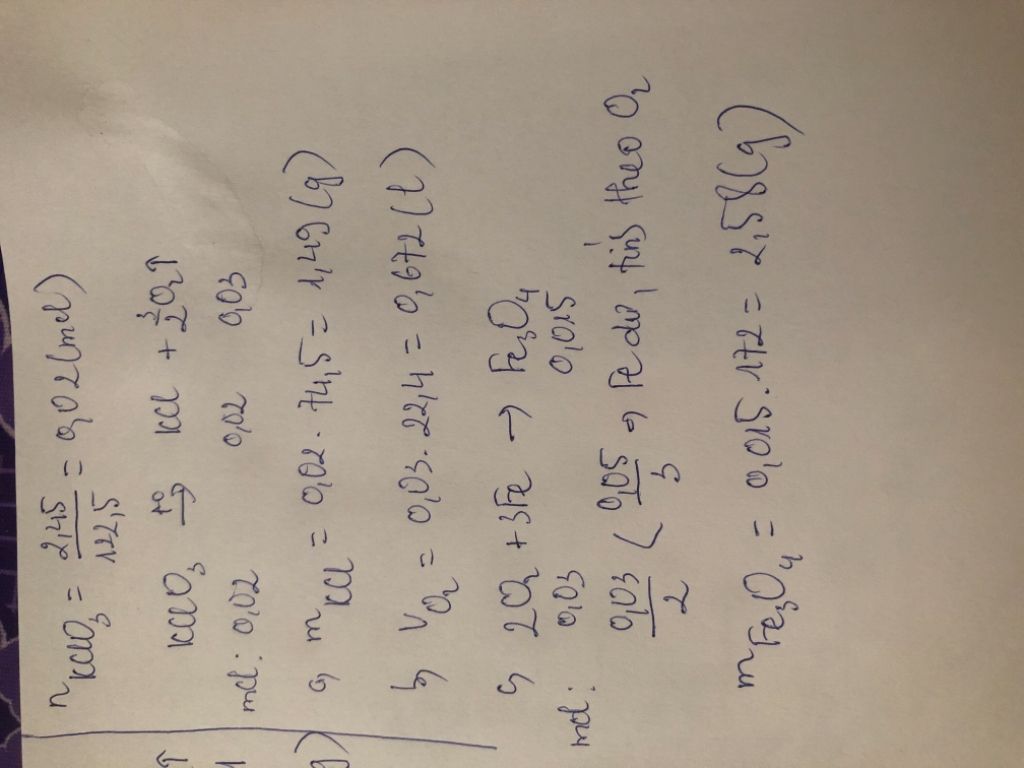 n KClO₃ = 2,45/122,5 = 0,02 (mol)
KClO₃ t⁰→ KCl + 3/2 O₂↑
mol: 0,02 0,02 0,03
a, m KCl = 0,02 . 74,5 = 1,49 (g)
b, V O₂ = 0,03 . 22,4 = 0,672 (l)
c, 2O₂ + 3Fe → Fe₃O₄
mol: 0,03 0,015
0,03/2 < 0,05/3 → Fe dư, tính theo O₂
m Fe₃O₄ = 0,015 . 172 = 2,58 (g)